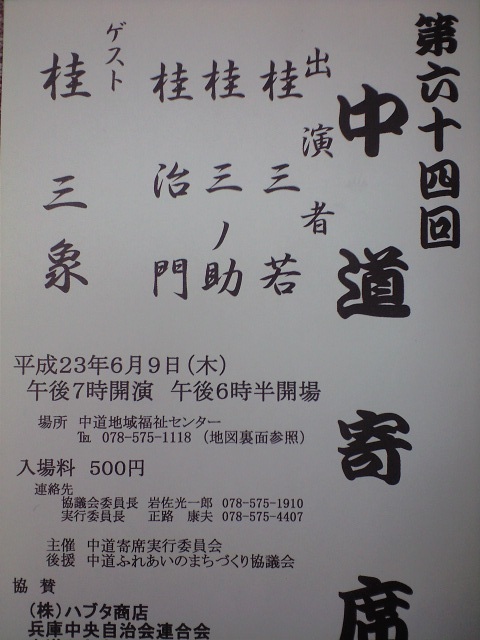 第六十四回
中道寄席
出演者
桂三若
桂三ノ助
桂治門
ゲスト
桂三象
平成23年6月9日(木)
午後7時開演 午後6時半開場
場所 中道地域福祉センター
℡ 078-575-1118 (地図裏面参照)
入場料 500円
連絡先
協議会委員長 岩佐光一郎 078-575-1910
実行委員長 正路 康夫 078-575-4407
主催 中道寄席実行委員会
後援 中道ふれあいのまちづくり協議会
協賛
(株)ハブタ商店
兵庫中央自治会連合会